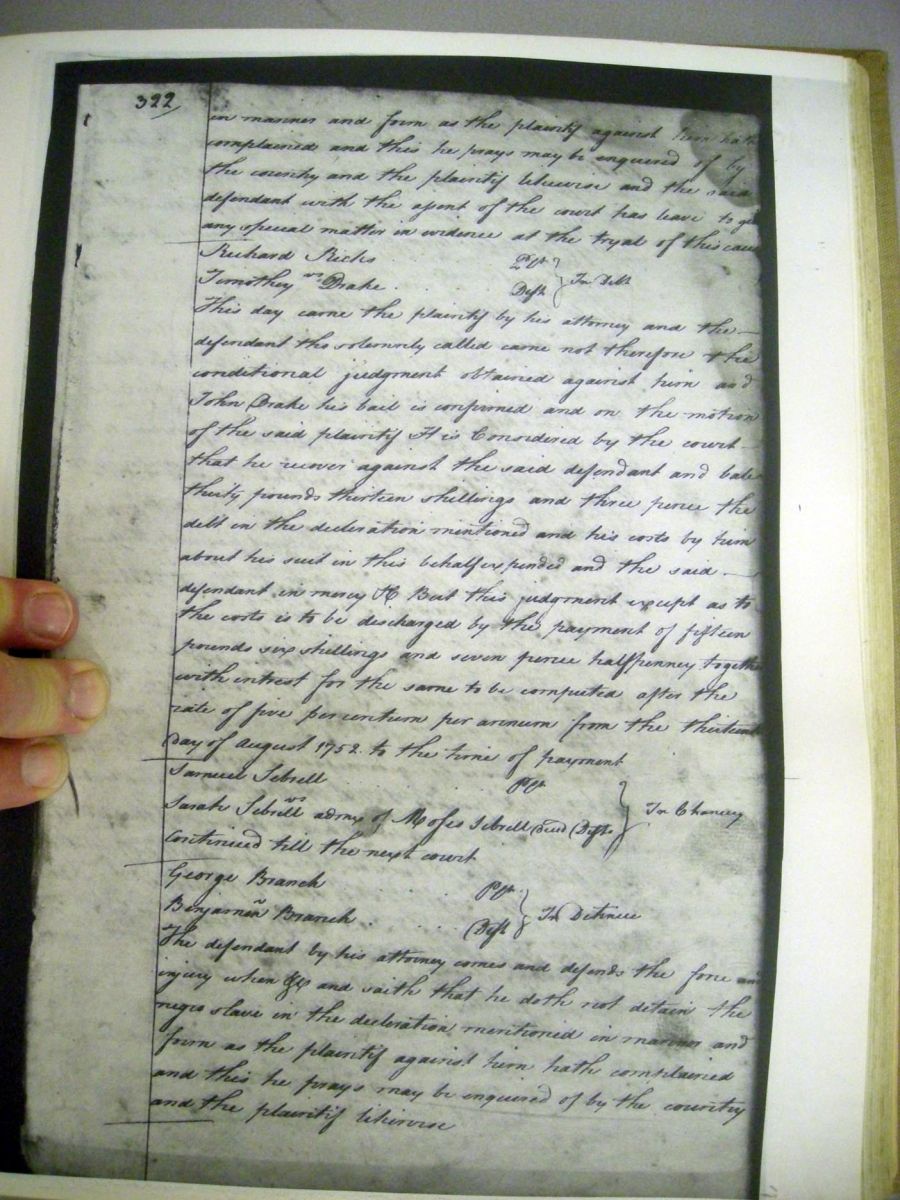 322
in manner and form as the plaintif against him hath
complained and this he prays may be enquired of by
the country and the plaintif likewise and the said
defendant with the assent of the court has leave to give
any special matter in evidence at the tryal of this cause
Richard Ricks Plt
vs In Debt
Timothey Drake Deft
This day came the plaintif by his attorney and the
defendant tho solemnly called came not therefore the
conditional judgment obtained against him and
John Drake his bail is confirmed and on the motion
of the said plaintif It is Considered by the court
that he recover against the said defendant and bale
thirty pounds thirteen shillings and three pence the
debt in the decleration mentioned and his costs by him
about his suit in this behalf expended and the said
defendant in mercy &c But this judgment except as to
the costs is to be discharged by the payment of fifteen
pounds six shillings and seven pence halfpenney together
with intrest for the same to be computed after the
rate of five per centum per annum from the thirteenth
day of August 1752 to the time of payment
Samuel Sebrell Plt
vs In Chancey
Sarah Sebrell admx of Moses Sebrell decd Defts
Continued till the next court
George Branch Plt
vs In Detinue
Benjamin Branch Deft
The defendant by his attorney comes and defends the force and
injury when &c and saith that he doth not detain the
negro slave in the decleration mentioned in manner and
form as the plaintif against him hath complained
and this he prays may be enquired of by the country
and the plaintif likewise